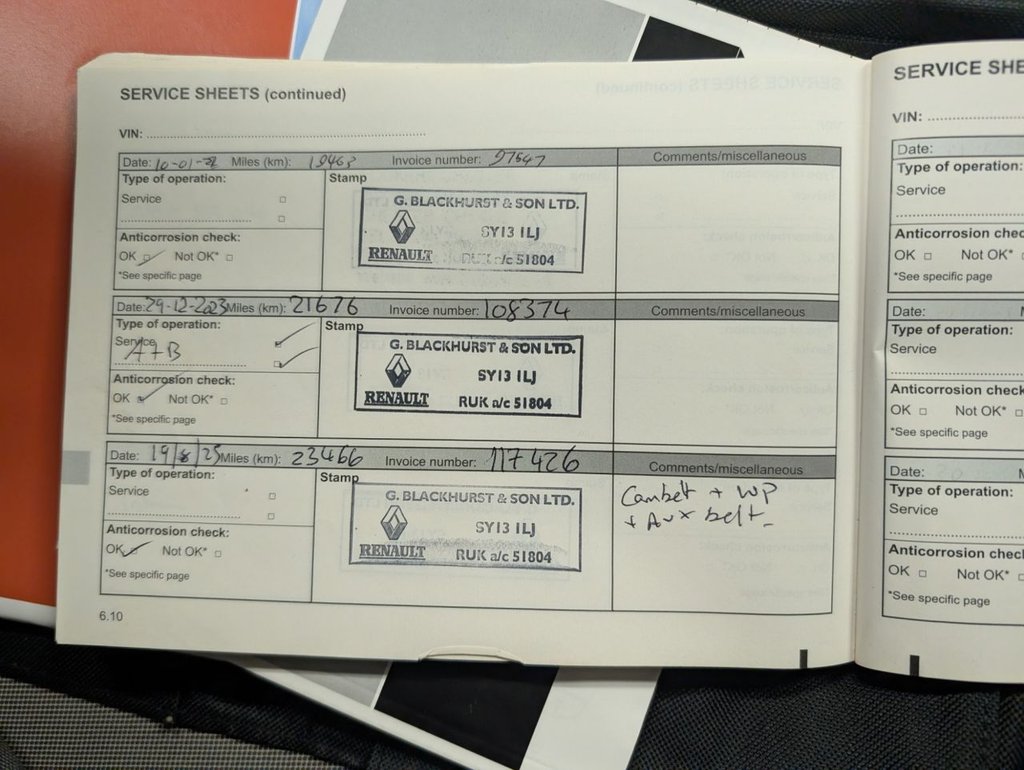 SERVICE SHEETS (continued)
VIN:
Date: 10-01-22 Miles (km): 19463 Invoice number: 97547 Comments/miscellaneous
Type of operation:
Service
Stamp
G. BLACKHURST & SON LTD.
SY13 1LJ
RENAULT RUK a/c 51804
Anticorrosion check:
OK Not OK*
*See specific page
Date: 29-12-2023 Miles (km): 21676 Invoice number: 108374 Comments/miscellaneous
Type of operation:
Service
A+B
Stamp
G. BLACKHURST & SON LTD.
SY13 1LJ
RENAULT RUK a/c 51804
Anticorrosion check:
OK Not OK*
*See specific page
Date: 19/8/25 Miles (km): 23466 Invoice number: 117426 Comments/miscellaneous
Type of operation:
Service
Stamp
G. BLACKHURST & SON LTD.
SY13 1LJ
RENAULT RUK a/c 51804
Cambelt + WP
+ Aux belt
Anticorrosion check:
OK Not OK*
*See specific page
6.10
SERVICE SHE
VIN:
Date:
Type of operation:
Service
Anticorrosion chec
OK Not OK*
*See specific page
Date:
Type of operation:
Service
Anticorrosion chec
OK Not OK*
*See specific page
Date:
Type of operation:
Service
Anticorrosion chec
OK Not OK*
*See specific page